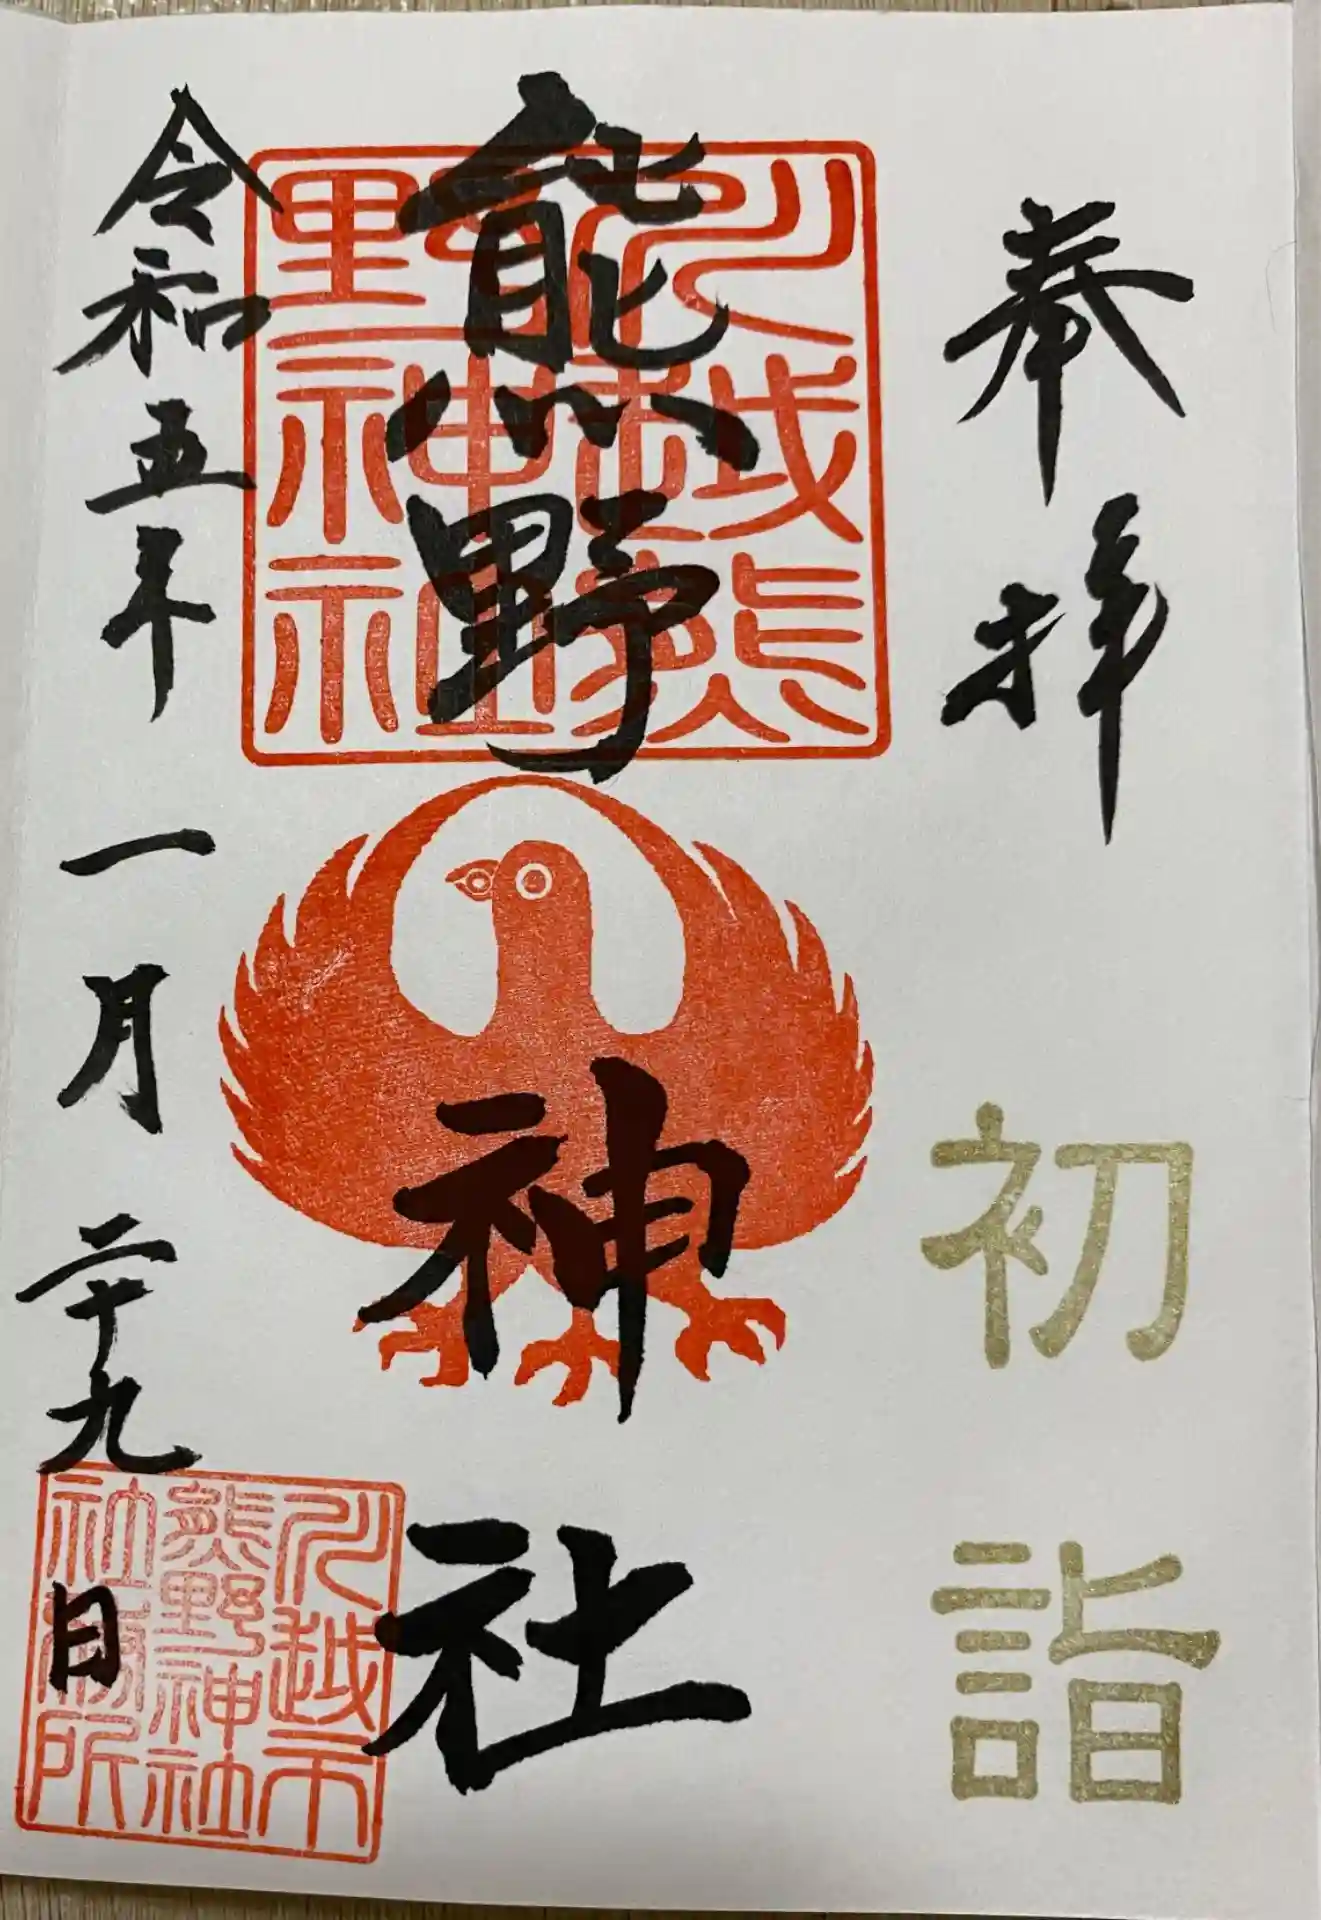 奉拝
初詣
熊野神社
川越熊野神社
令和五年一月二十九日
川越市
熊野神社
社務所